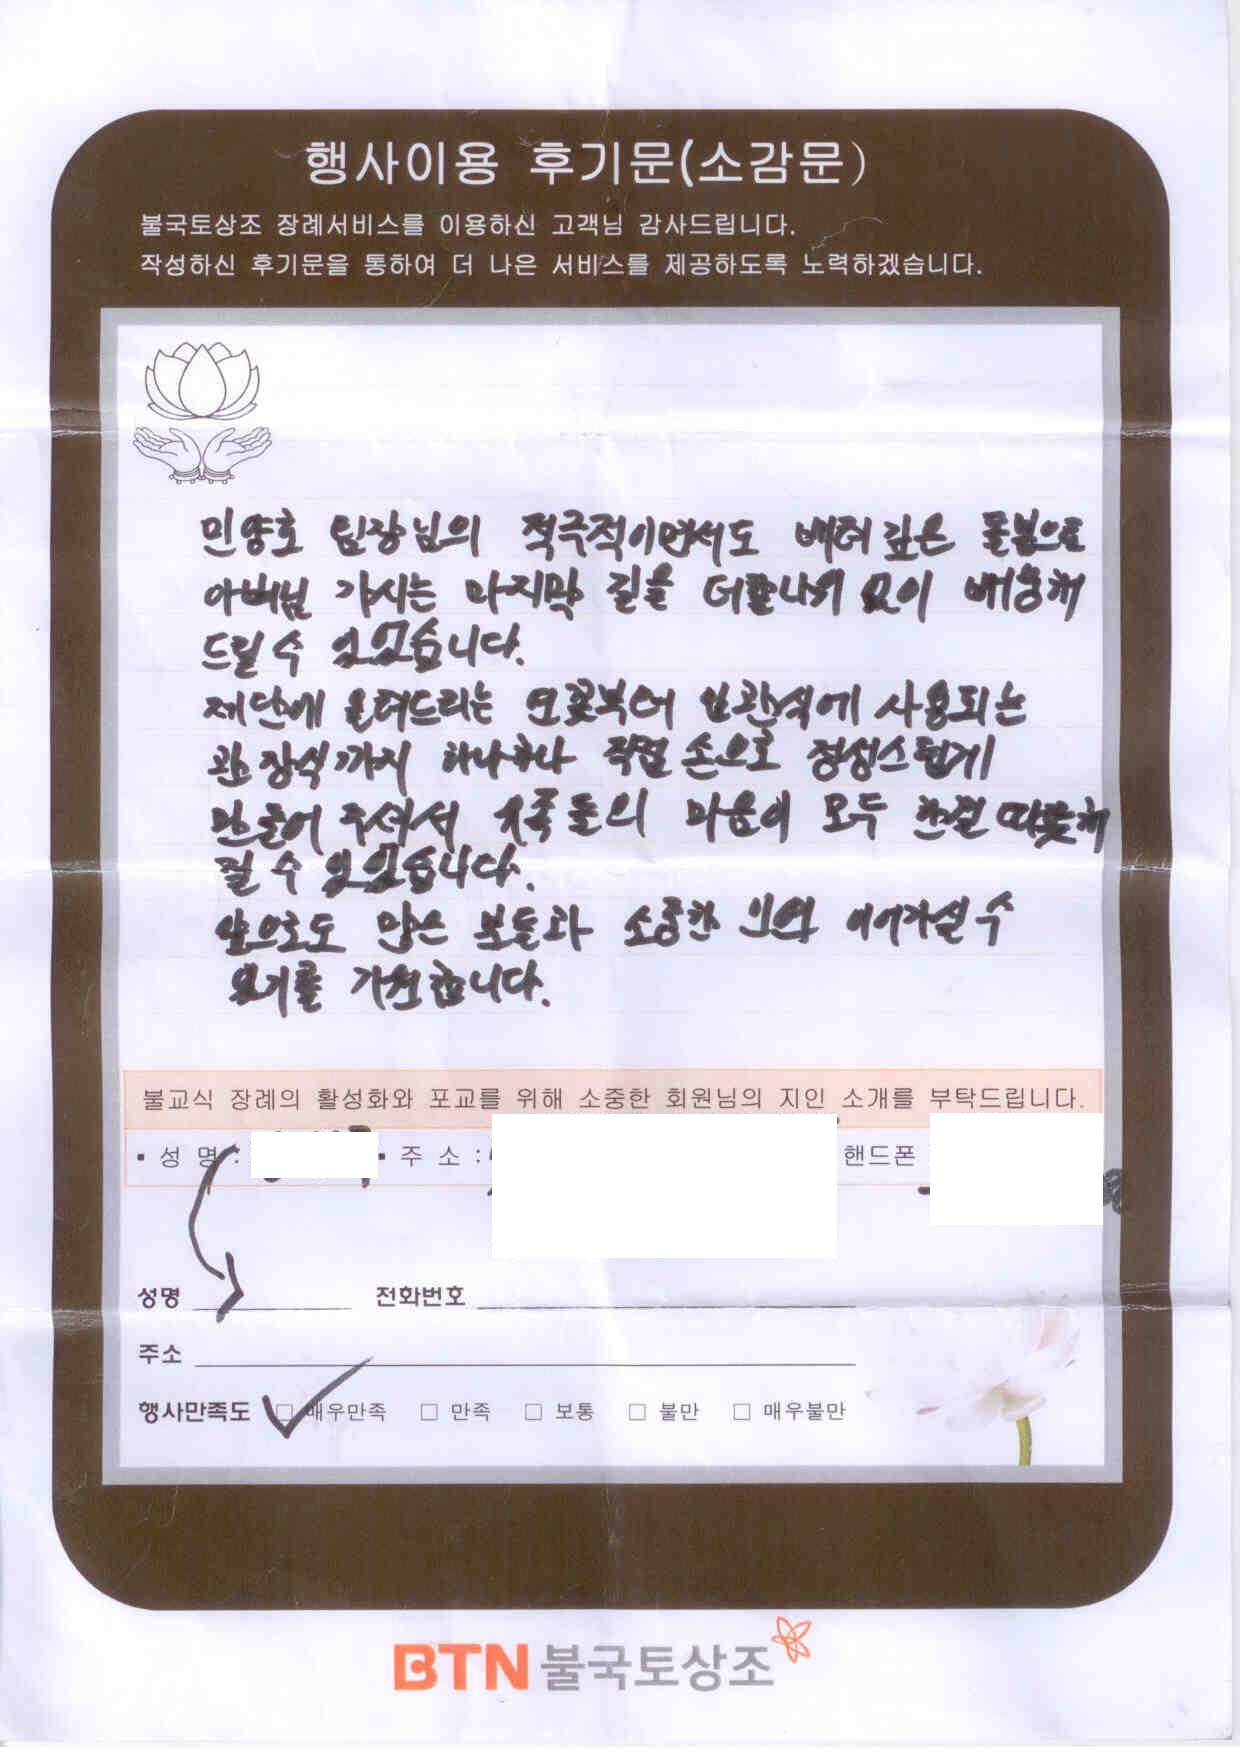 행사이용 후기문(소감문)
불국토상조 장례서비스를 이용하신 고객님 감사드립니다.
작성하신 후기문을 통하여 더 나은 서비스를 제공하도록 노력하겠습니다.
민양호 팀장님의 적극적이면서도 배려 깊은 돌봄으로
아버님 가시는 마지막 길을 더할나위 없이 배웅해
드릴 수 있었습니다.
제단에 올려드리는 모꽃부터 입관식에 사용되는
관 장식까지 하나하나 직접 손으로 정성스럽게
만들어 주셔서 가족들의 마음이 모두 한결 따뜻해
질 수 있었습니다.
앞으로도 많은 분들과 소중한 인연 이어가실 수
있기를 기원합니다.
불교식 장례의 활성화와 포교를 위해 소중한 회원님의 지인 소개를 부탁드립니다.
▪ 성 명 : ▪ 주 소 : 핸드폰
성명 전화번호
주소
행사만족도 □ 매우만족 □ 만족 □ 보통 □ 불만 □ 매우불만
BTN 불국토상조